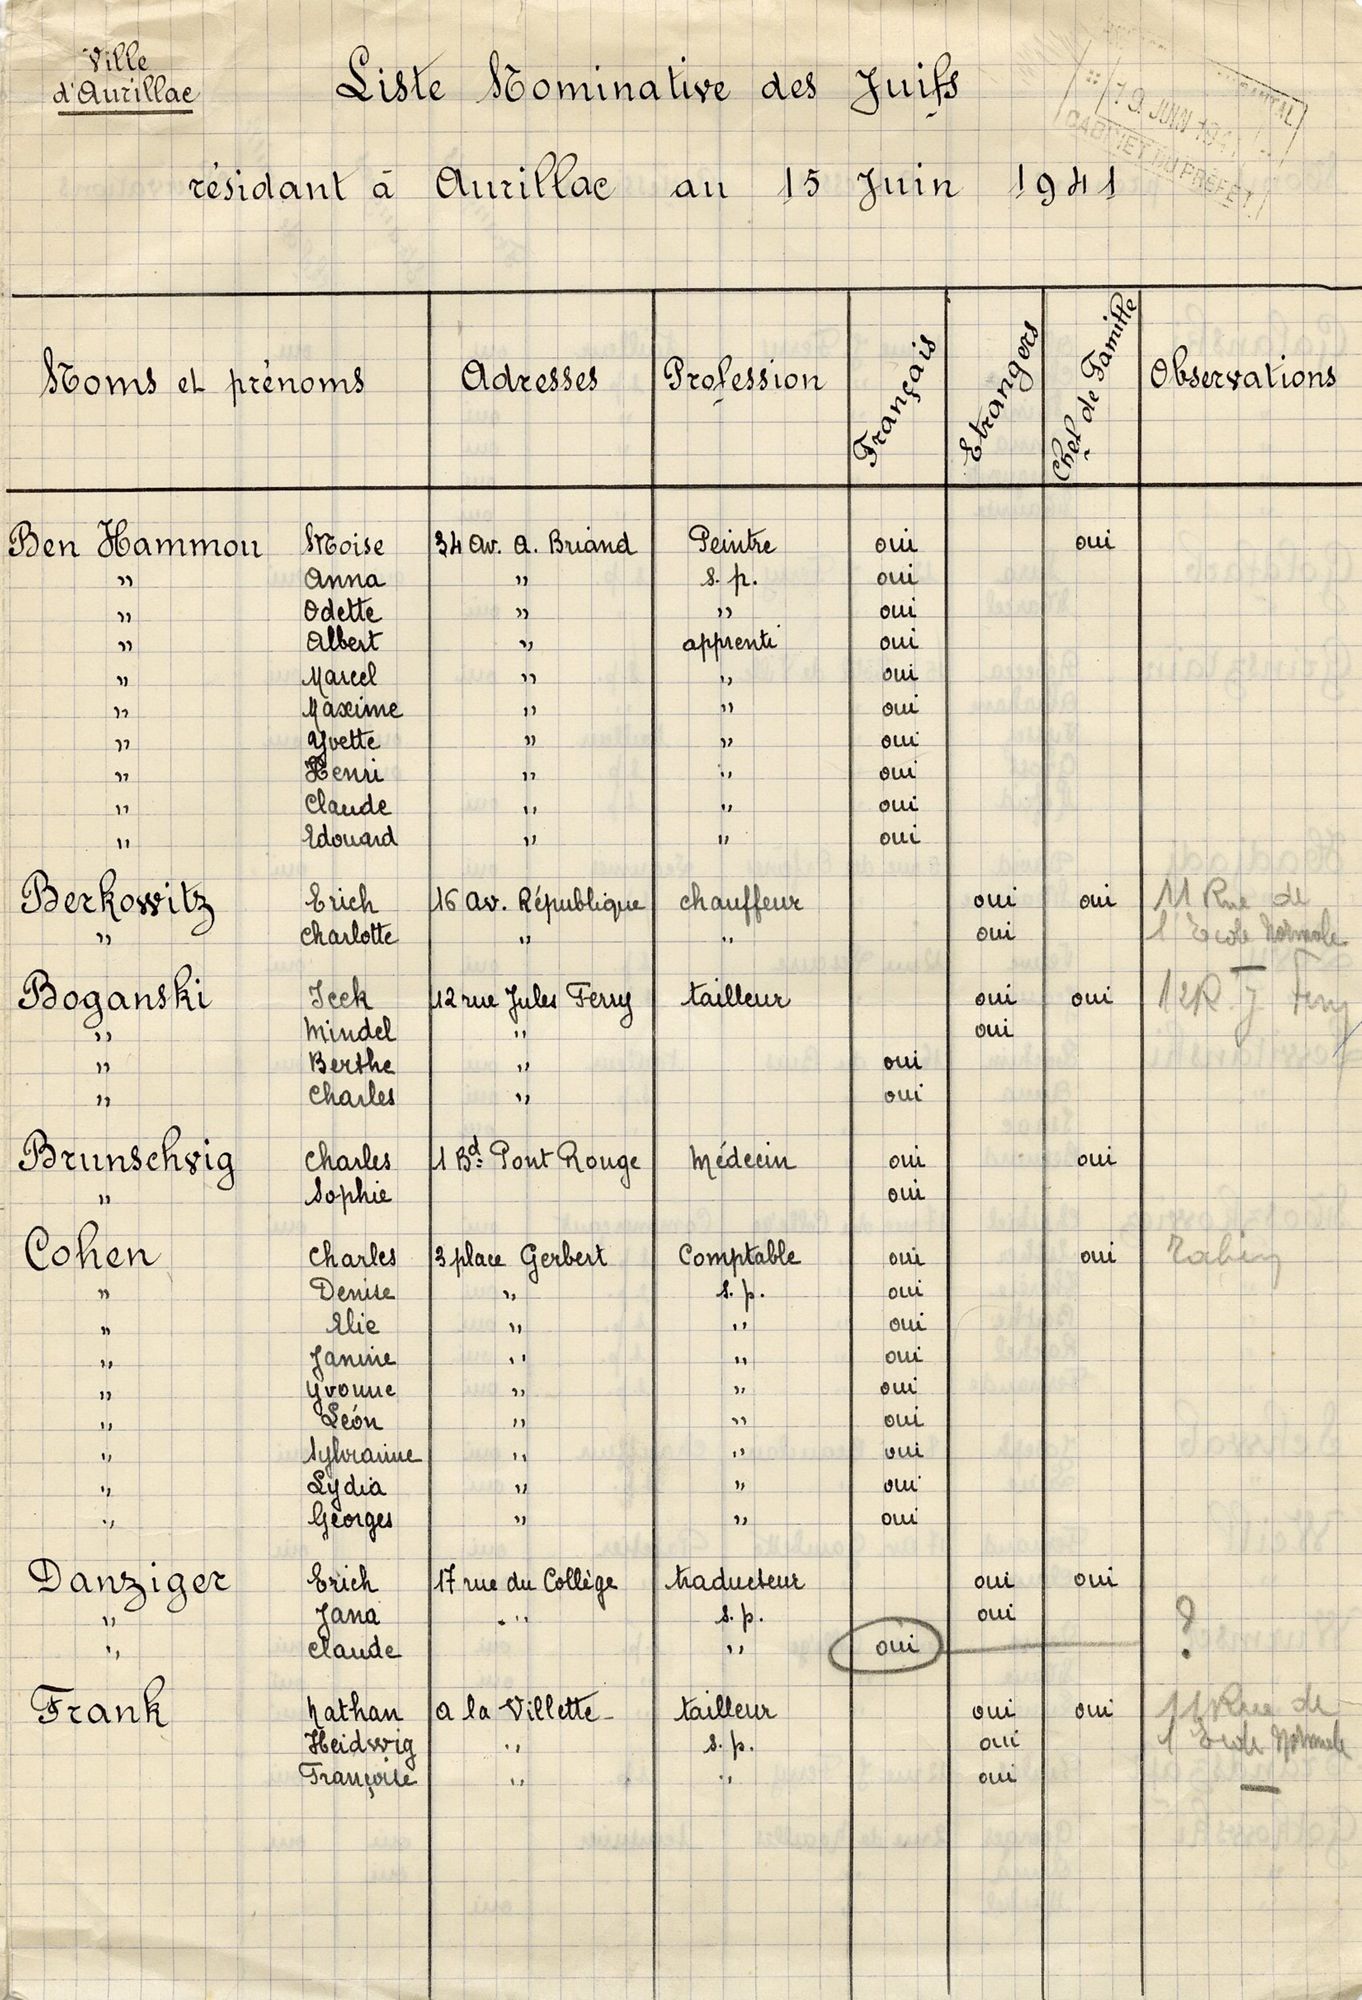 Ville
d'Aurillac
Liste Nominative des Juifs
résidant à Aurillac au 15 Juin 1941
CANTAL
19 JUIN 1941
CABINET DU PRÉFET
Noms et prénoms Adresses Profession Français Etrangers Chef de Famille Observations
Ben Hammou Moise 34 Av. A. Briand Peintre oui oui
" Anna " s. p. oui
" Odette " " oui
" Albert " apprenti oui
" Marcel " " oui
" Maxime " " oui
" Yvette " " oui
" Henri " " oui
" Claude " " oui
" Edouard " " oui
Berkowitz Erich 16 Av. République chauffeur oui oui 11 Rue de
" Charlotte " " oui l'Ecole Normale
Boganski Icek 12 rue Jules Ferry tailleur oui oui 12 R. J Ferry
" Mindel " oui
" Berthe " oui
" Charles " oui
Brunschvig Charles 1 Bd Pont Rouge Médecin oui oui
" Sophie oui
Cohen Charles 3 place Gerbert Comptable oui oui
" Denise " s. p. oui
" Elie " " oui
" Janine " " oui
" Yvonne " " oui
" León " " oui
" Sylvianne " " oui
" Lydia " " oui
" Georges " " oui
Danziger Erich 17 rue du Collège traducteur oui oui
" Jana " s. p. oui
" Claude " oui ?
Frank Nathan a la Villette tailleur oui oui 11 Rue de
Heidwig " s. p. oui l'Ecole Normale
Françoise " " oui